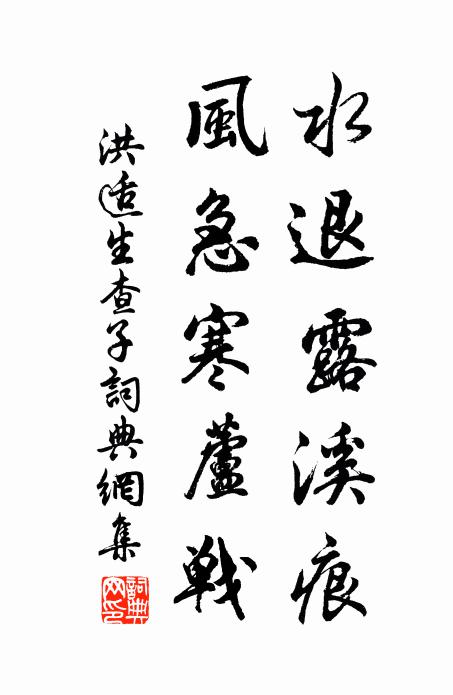 水退露溪痕
風急寒蘆戰
洪适生查子詞典網集
詞典網印